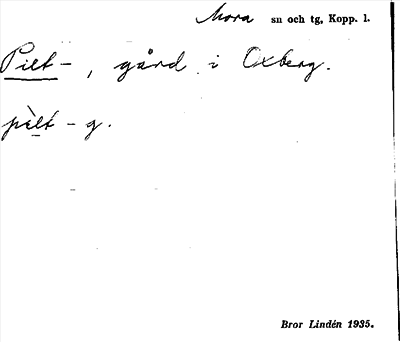 Mora sn och tg, Kopp. l.
Pilt-, gård i Oxberg.
pìlt - g.
Bror Lindén 1935.